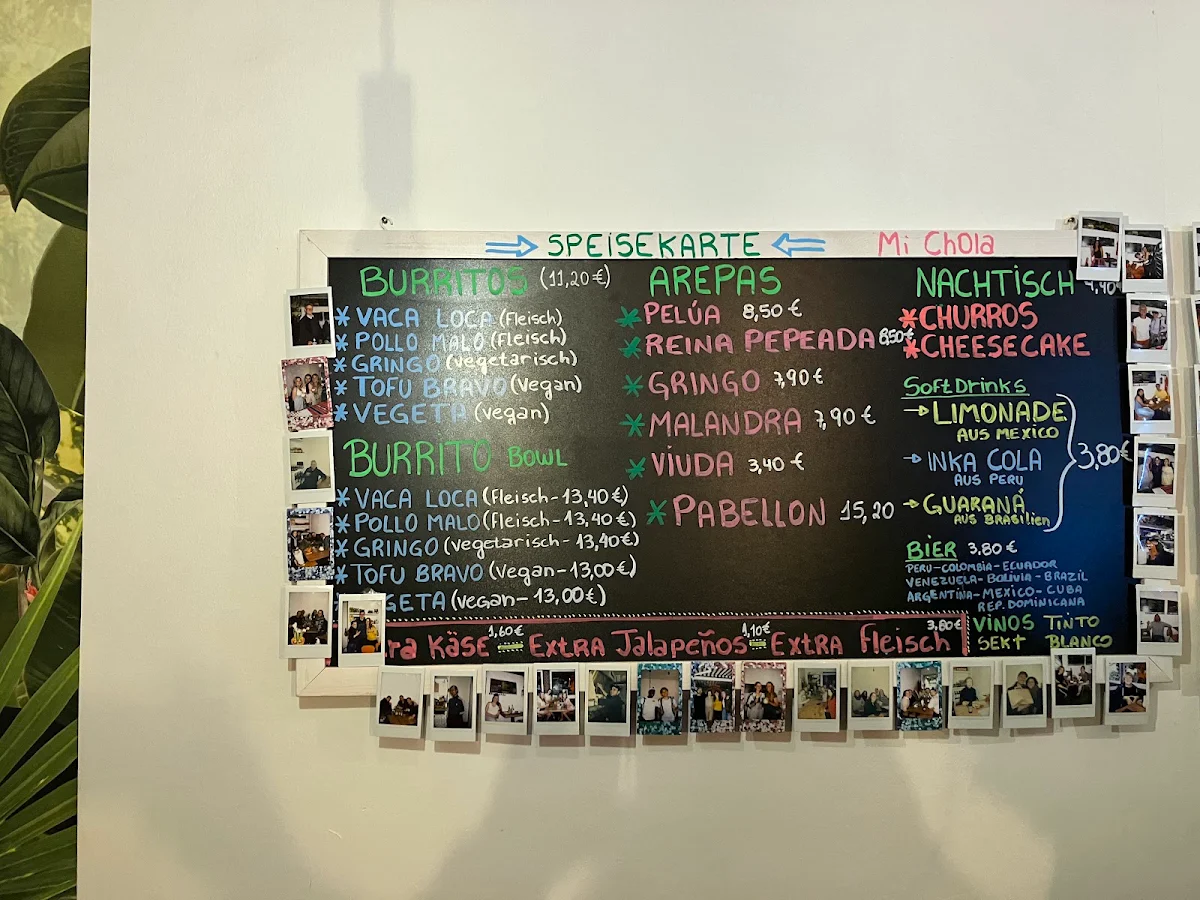 SPEISEKARTE
Mi Chola
BURRITOS (11,20€)
* VACA LOCA (Fleisch)
* POLLO MALO (Fleisch)
* GRINGO (vegetarisch)
* TOFU BRAVO (Vegan)
* VEGETA (vegan)
BURRITO BOWL
* VACA LOCA (Fleisch-13,40€)
* POLLO MALO (Fleisch-13,40€)
* GRINGO (vegetarisch-13,40€)
* TOFU BRAVO (vegan-13,00€)
GETA (vegan-13,00€)
AREPAS
* PELÚA 8,50 €
* REINA PEPEADA 8,50€
* GRINGO 7,90 €
* MALANDRA 7,90 €
* VIUDA 3,40 €
* PABELLON 15,20
NACHTISCH 4,40
* CHURROS
* CHEESECAKE
SOFTDRINKS
→ LIMONADE
AUS MEXICO
→ INKA COLA
AUS PERU
→ GUARANÁ
AUS BRASILien
3,80€
BIER 3.80 €
PERU-COLOMBIA-ECUADOR
VENEZUELA-BOLIVIA-BRAZIL
ARGENTINA-MEXICO-CUBA
REP.DOMINICANA
VINOS TINTO
SEKT BLANCO
ra KÄSE 1,60€ EXTRA Jalapeños 1,10€ EXTRA Fleisch 3,80€